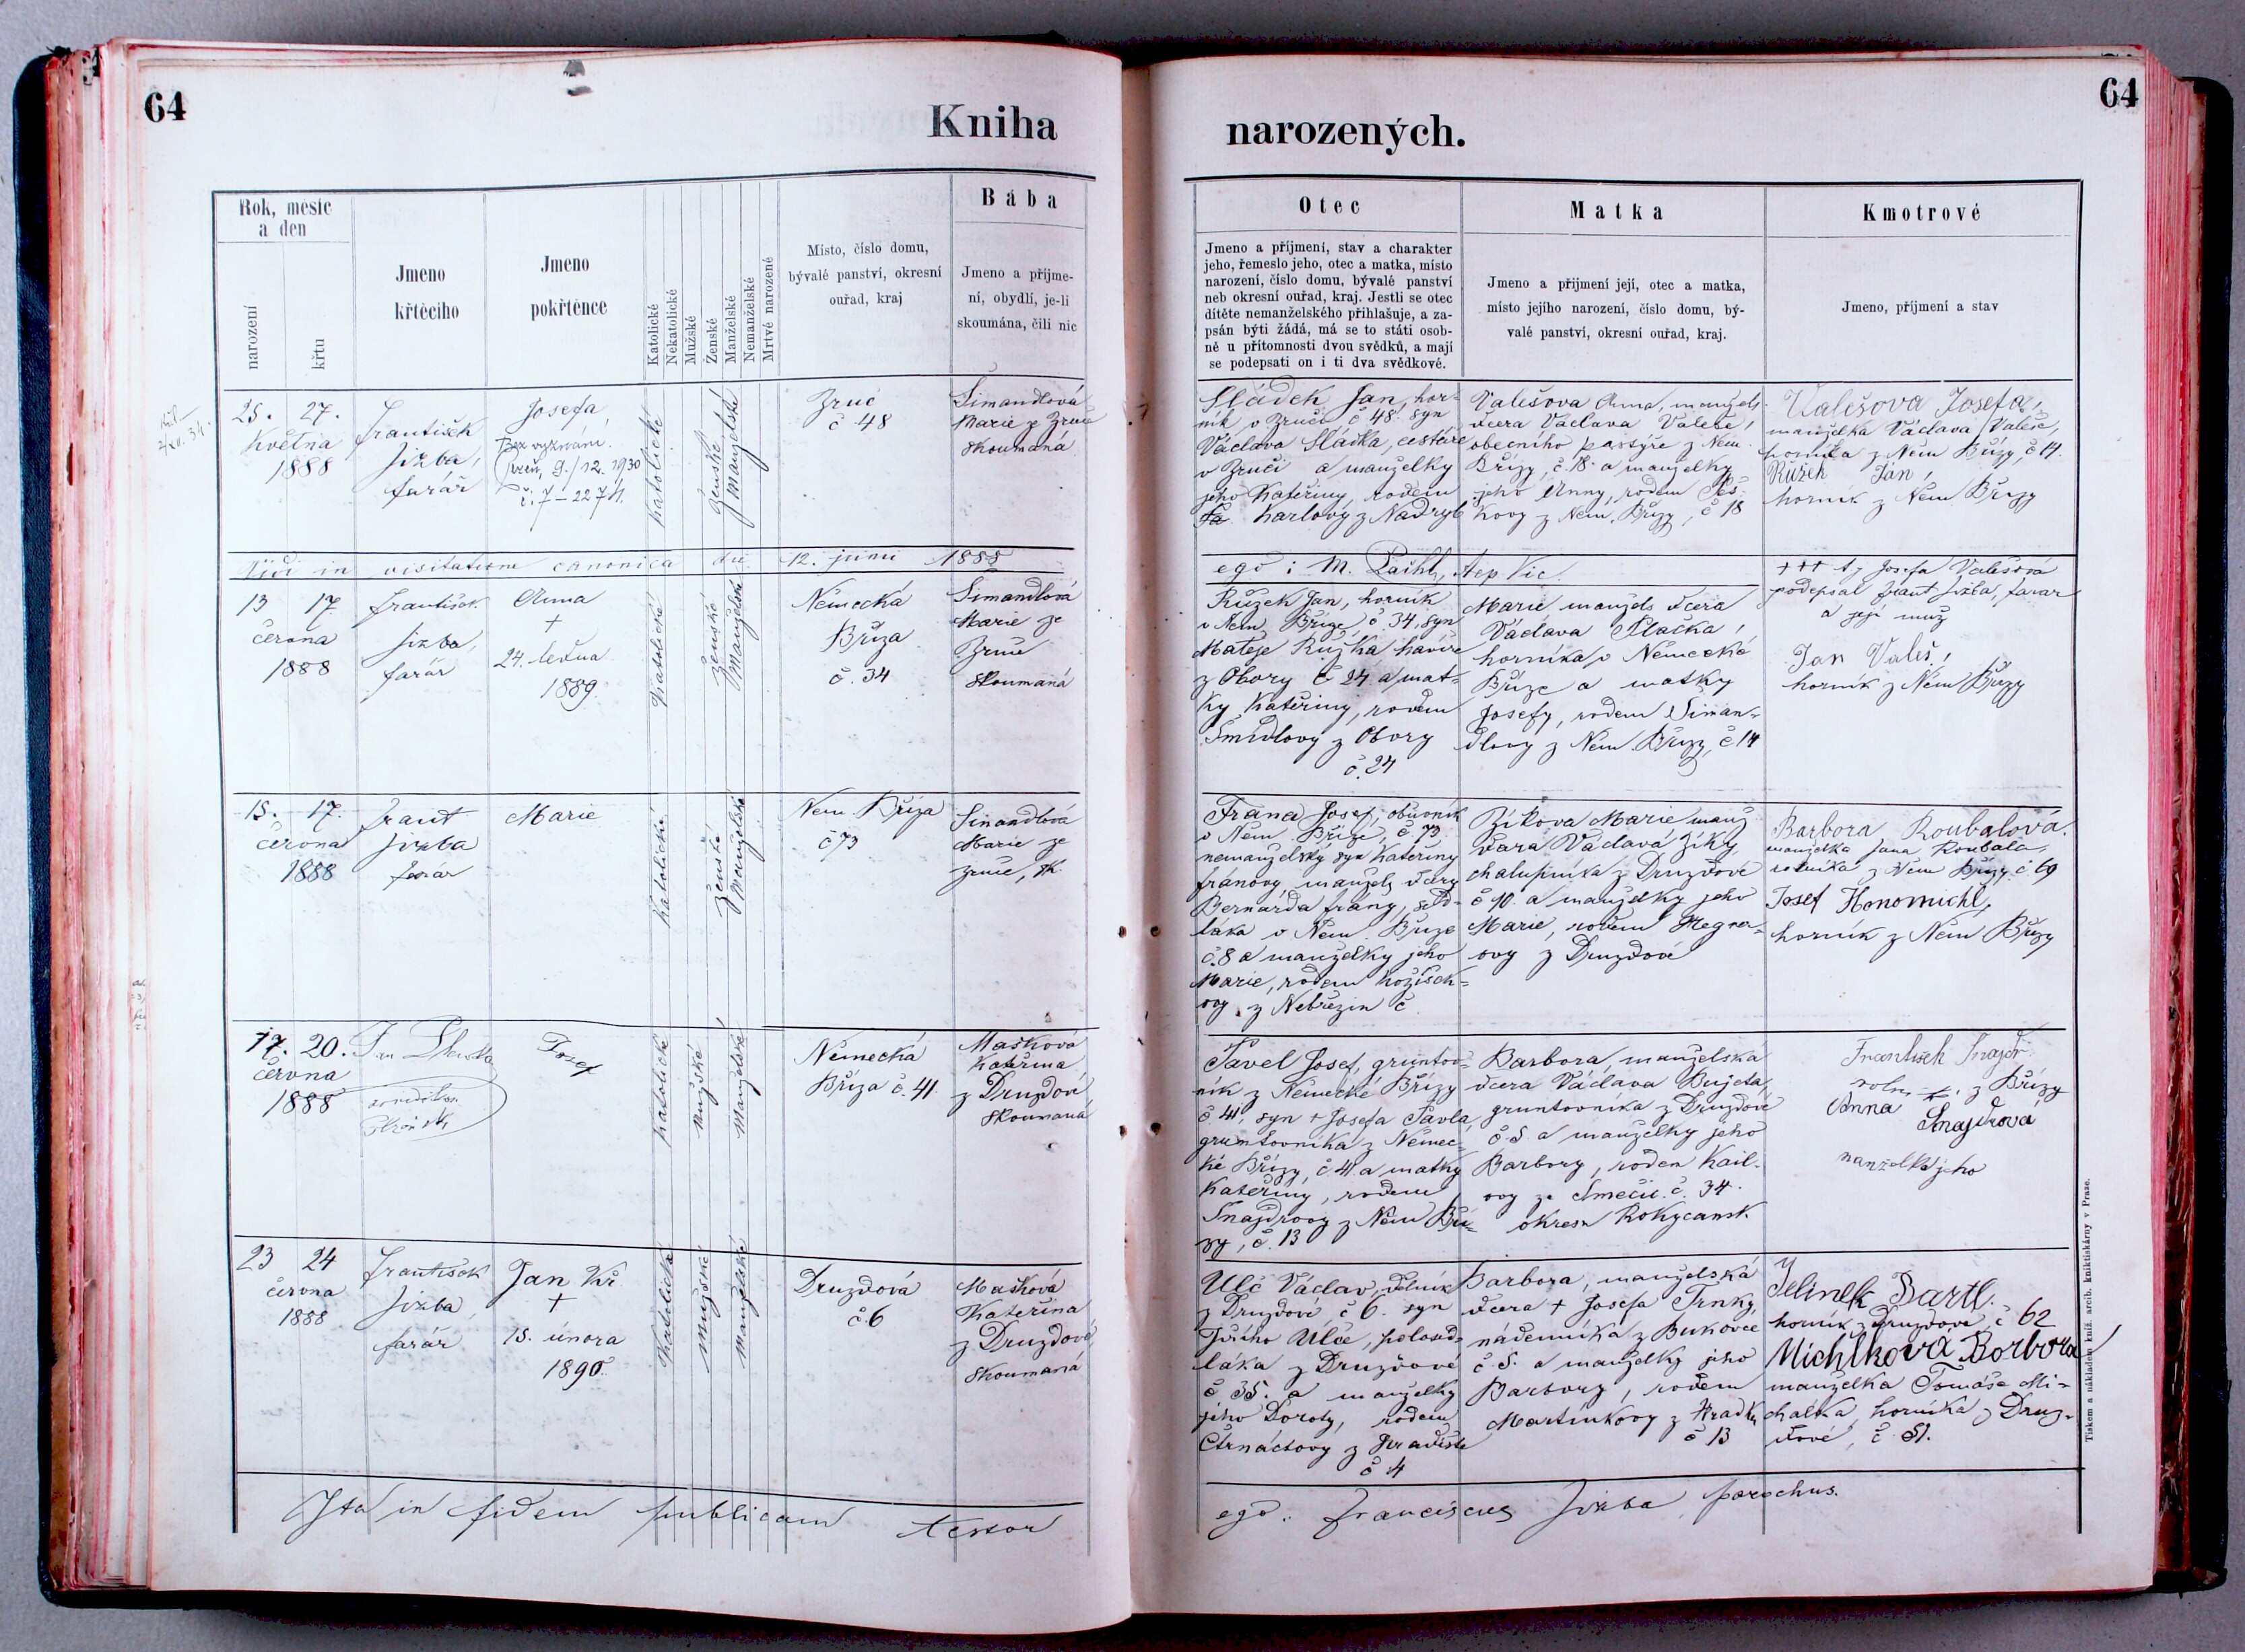 64
Kniha
Rok, měsíc
a den
narození
křtu
Jmeno
křtěcího
Jmeno
pokřtěnce
Katolické
Nekatolické
Mužské
Ženské
Manželské
Nemanželské
Mrtvě narozené
Místo, číslo domu,
bývalé panství, okresní
ouřad, kraj
Bába
Jmeno a příjme-
ní, obydlí, je-li
skoumána, čili nic
25. 27.
Května
1888
František
Jizba,
farář
Josefa
Bez vyznání
9./12. 1930
č. 7 – 2274.
Katolické
Ženské
Manželské
Zruč
č 48
Šimandlová
Marie ze Zruče
skoumaná
Vidi in visitatione canonica die 12. junii 1888
13 17
června
1888
František
Jizba,
farář
Anna
+
24. ledna
1889.
Katolické
Ženské
Manželské
Německá
Bříza
č. 34
Šimandlová
Marie ze
Zruče
skoumaná
15. 17.
června
1888
Frant
Jizba
farář
Marie
Katolické
Ženské
Manželské
Něm. Bříza
č 73
Šimandlová
Marie ze
Zruče, sk.
17. 20.
června
1888
Jan
Josef
Katolické
Mužské
Manželské
Německá
Bříza č. 41
Mašková
Kateřina
z Druzdové
skoumaná
23 24
června
1888
František
Jizba,
farář
Jan Kř
+
15. února
1890.
Katolické
Mužské
Manželské
Druzdová
č. 6
Mašková
Kateřina
z Druzdové
skoumaná
Ita in fidem publicam testor
64
narozených.
Otec
Jmeno a příjmení, stav a charakter
jeho, řemeslo jeho, otec a matka, místo
narození, číslo domu, bývalé panství
neb okresní ouřad, kraj. Jestli se otec
dítěte nemanželského přihlašuje, a za-
psán býti žádá, má se to státi osob-
ně u přítomnosti dvou svědků, a mají
se podepsati on i ti dva svědkové.
Matka
Jmeno a přijmení její, otec a matka,
místo jejího narození, číslo domu, bý-
valé panství, okresní ouřad, kraj.
Kmotrové
Jmeno, příjmení a stav
Sládek Jan, hor-
ník v Zruči č 48. syn
Václava Sládka, cestáře
v Zruči a manželky
jeho Kateřiny, rodem
Karlovy z Nadryb
Valešova Anna, manžels.
dcera Václava Valeše,
obecního pastýře z Něm.
Břízy, č. 18. a manželky
jeho Anny, rodem Peš-
kovy z Něm. Břízy, č 18
Valešova Josefa,
manželka Václava Valeše,
horníka z Něm Břízy, č 14.
Růžek Jan,
horník z Něm Břízy
ego: M. Pachl, Aep Vic.
Růžek Jan, horník
v Něm. Bříze, č 34, syn
Matěje Růžka, havíře
z Obory č 24 a mat-
ky Kateřiny, rodem
Šmídlovy z Obory
č. 24
Marie manžels dcera
Václava Plačka,
horníka v Německé
Bříze a matky
Josefy, rodem Šiman-
dlovy z Něm. Břízy, č 14
+++ t.j. Josefa Valešová
podepsal Frant Jizba, farář
a její muž
Jan Valeš,
horník z Něm Břízy
Frana Josef, obuvník
v Něm. Bříze, č 73
nemanželský syn Kateřiny
Fránovy, manžels dcery
Bernarda Frány, sed-
láka v Něm. Bříze
č. 8 a manželky jeho
Marie, rodem Kožíšk-
ovy z Nebřezin č
Zíkova Marie manž
dcera Václava Zíky,
chalupníka z Druzdové
č 10. a manželky jeho
Marie, rodem Hegner-
ovy z Druzdové
Barbora Roubalová.
manželka Jana Roubala,
rolníka z Něm Břízy č 69
Josef Honomichl,
horník z Něm Břízy
Pavel Josef, gruntov-
ník z Německé Břízy
č. 41, syn + Josefa Pavla,
gruntovníka z Němec-
ké Břízy, č 41 a matky
Kateřiny, rodem
Šnajdrovy z Něm Bří-
zy, č. 13
Barbora, manželská
dcera Václava Bujeta,
gruntovníka z Druzdové
č. 5. a manželky jeho
Barbory, rodem Kail-
ovy ze Smečic č. 34.
okresu Rokycansk.
František Šnajdr
z Břízy
Anna
Šnajdrová
manželka jeho
Ulč Václav, dělník
z Druzdové č 6. syn
Jiřího Ulče, polosed-
láka z Druzdové
č 35. a manželky
jeho Doroty, rodem
Čtrnáctovy z Hradiště
č 4
Barbora, manželská
dcera + Josefa Trnky,
nádeníka z Bukovce
č. 5. a manželky jeho
Barbory, rodem
Martínkovy z Hradku
č 13
Jelinek Bartl.
horník z Druzdové, č 62
Michlková Borbora
manželka Tomáše Mi-
chálka, horníka z Druz-
dové, č. 51.
ego: Franciscus Jizba, parochus.
Tiskem a nákladem kníž. arcib. knihtiskárny v Praze.